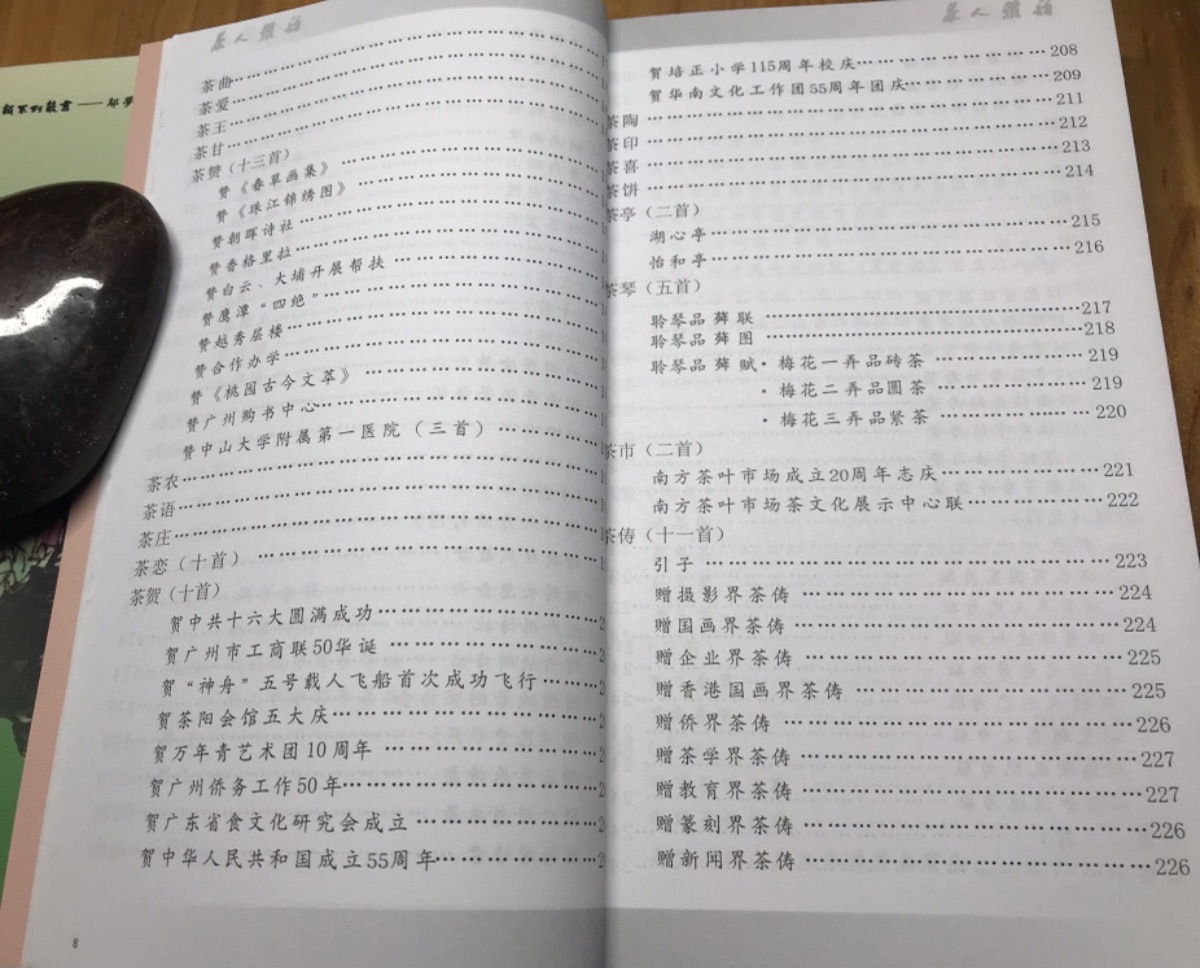 茶人雅韵
茶曲
茶爱
茶王
茶甘
茶赞（十三首）
赞《春草画集》
赞《珠江锦绣图》
赞朝晖诗社
赞香格里拉
赞白云、大埔开展帮扶
赞鹰潭“四绝”
赞越秀层楼
赞合作办学
赞《桃园古今文萃》
赞广州购书中心
赞中山大学附属第一医院（三首）
茶农
茶语
茶庄
茶恋（十首）
茶贺（十首）
贺中共十六大圆满成功
贺广州市工商联50华诞
贺“神舟”五号载人飞船首次成功飞行
贺茶阳会馆五大庆
贺万年青艺术团10周年
贺广州侨务工作50年
贺广东省食文化研究会成立
贺中华人民共和国成立55周年
8
茶人雅韵
贺培正小学115周年校庆……208
贺华南文化工作团55周年团庆……209
茶陶……211
茶印……212
茶喜……213
茶饼……214
茶亭（二首）
湖心亭……215
怡和亭……216
茶琴（五首）
聆琴品蕣联……217
聆琴品蕣图……218
聆琴品蕣赋·梅花一弄品砖茶……219
·梅花二弄品圆茶……219
·梅花三弄品紧茶……220
茶市（二首）
南方茶叶市场成立20周年志庆……221
南方茶叶市场茶文化展示中心联……222
茶俦（十一首）
引子……223
赠摄影界茶俦……224
赠国画界茶俦……224
赠企业界茶俦……225
赠香港国画界茶俦……225
赠侨界茶俦……226
赠茶学界茶俦……227
赠教育界茶俦……227
赠篆刻界茶俦……226
赠新闻界茶俦……226